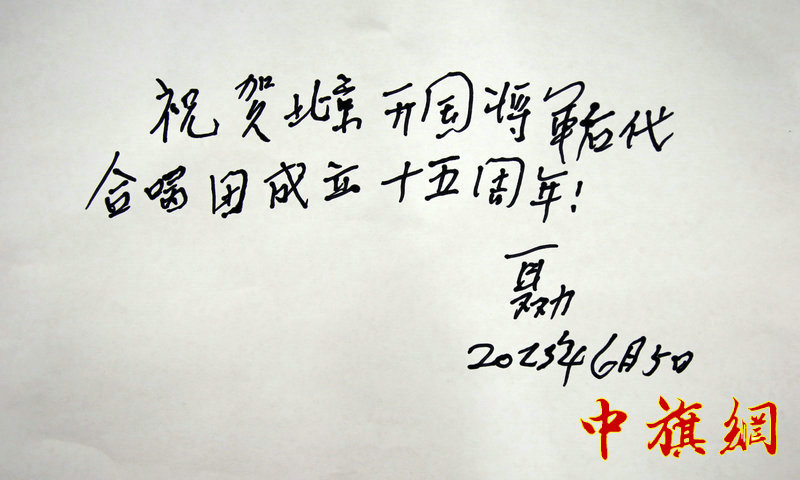 祝贺北京开国将军后代
合唱团成立十五周年!
聂力
2023年6月5日
中旗網